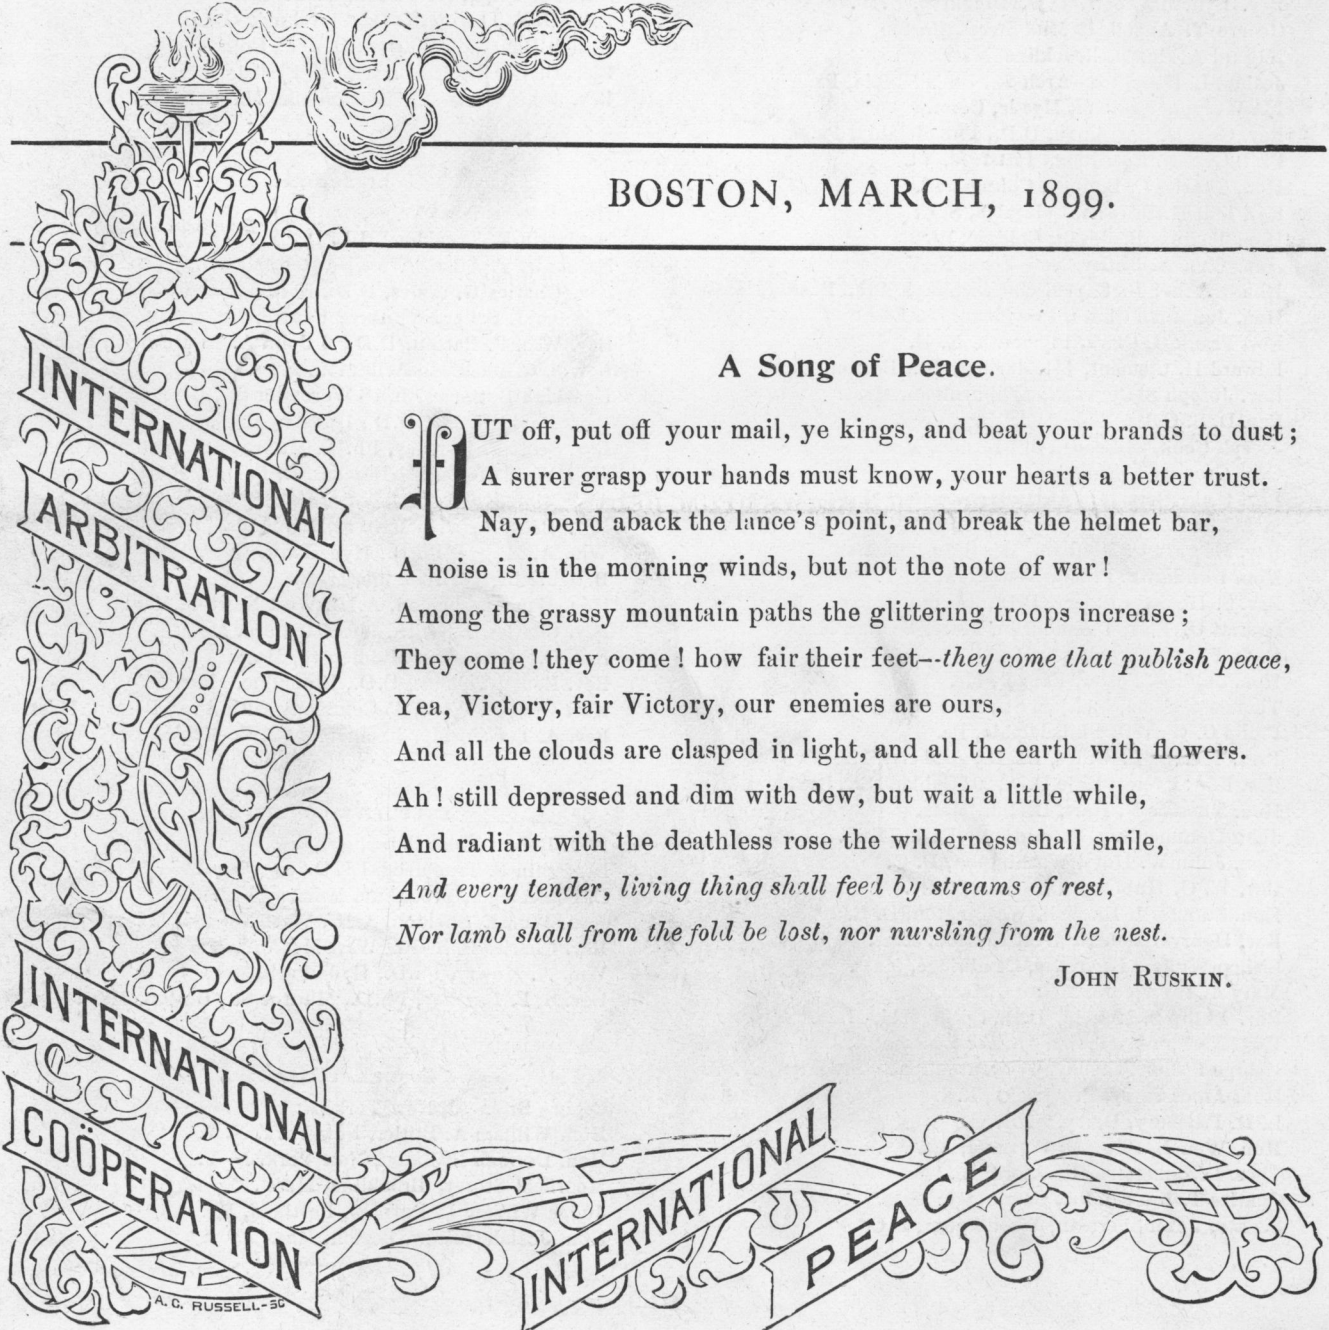 BOSTON, MARCH, 1899.
A Song of Peace.
PUT off, put off your mail, ye kings, and beat your brands to dust;
A surer grasp your hands must know, your hearts a better trust.
Nay, bend aback the lance's point, and break the helmet bar,
A noise is in the morning winds, but not the note of war!
Among the grassy mountain paths the glittering troops increase;
They come! they come! how fair their feet—they come that publish peace,
Yea, Victory, fair Victory, our enemies are ours,
And all the clouds are clasped in light, and all the earth with flowers.
Ah! still depressed and dim with dew, but wait a little while,
And radiant with the deathless rose the wilderness shall smile,
And every tender, living thing shall feed by streams of rest,
Nor lamb shall from the fold be lost, nor nursling from the nest.
JOHN RUSKIN.
INTERNATIONAL
ARBITRATION
INTERNATIONAL
COÖPERATION
INTERNATIONAL
PEACE
A. C. RUSSELL-SC